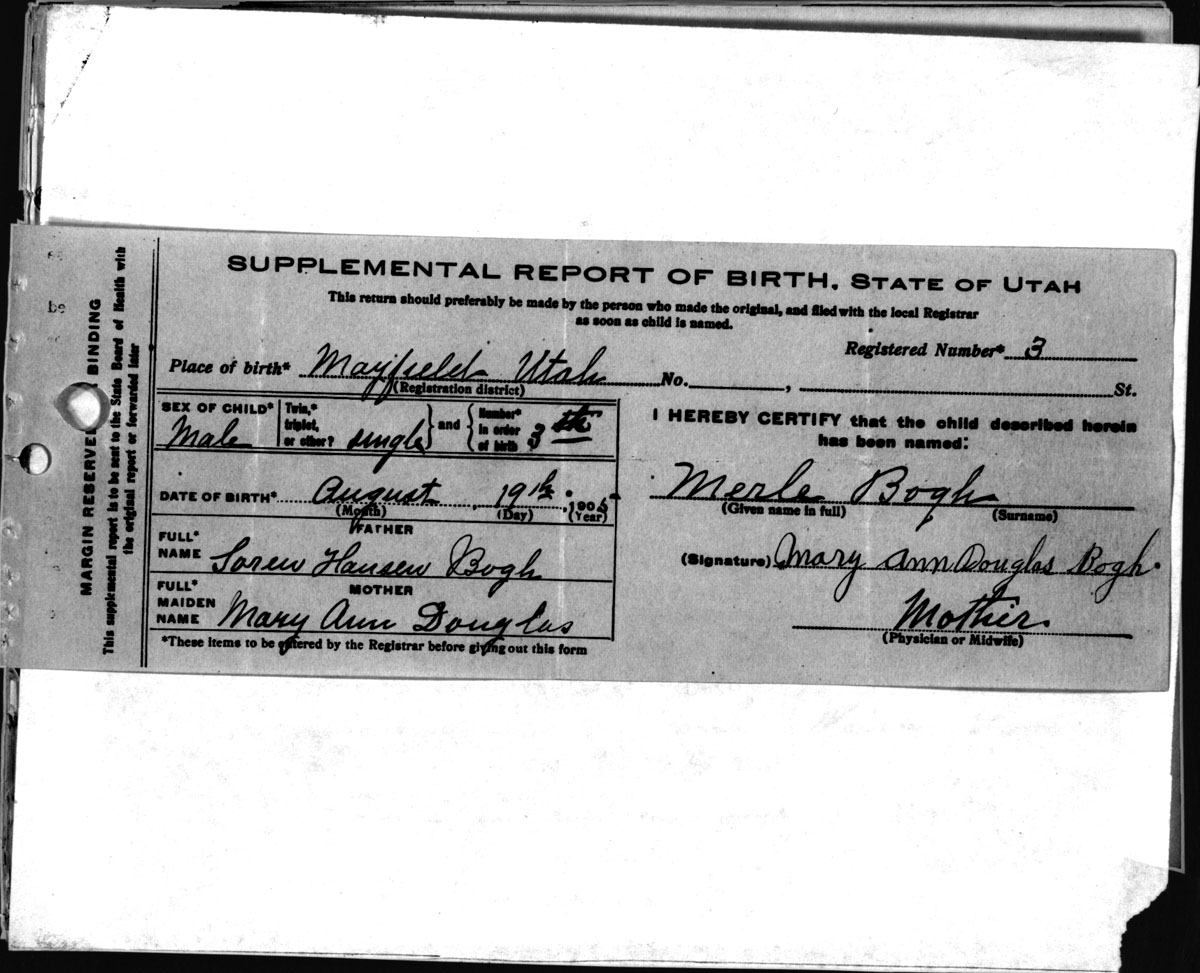 SUPPLEMENTAL REPORT OF BIRTH. STATE OF UTAH
This return should preferably be made by the person who made the original, and filed with the local Registrar
as soon as child is named.
Registered Number* 3
Place of birth* Mayfield Utah No. , St.
(Registration district)
SEX OF CHILD* Male
Twin,* triplet, or other? single
and
Number* in order of birth 3th
DATE OF BIRTH* August 19th, 190
(Month) (Day) (Year)
FATHER
FULL* NAME Soren Hansen Bogh
MOTHER
FULL* MAIDEN NAME Mary Ann Douglas
*These items to be entered by the Registrar before giving out this form
I HEREBY CERTIFY that the child described herein
has been named:
Merle Bogh
(Given name in full) (Surname)
(Signature) Mary Ann Douglas Bogh.
Mother.
(Physician or Midwife)
MARGIN RESERVED BINDING
This supplemental report is to be sent to the State Board of Health with
the original report or forwarded later
be